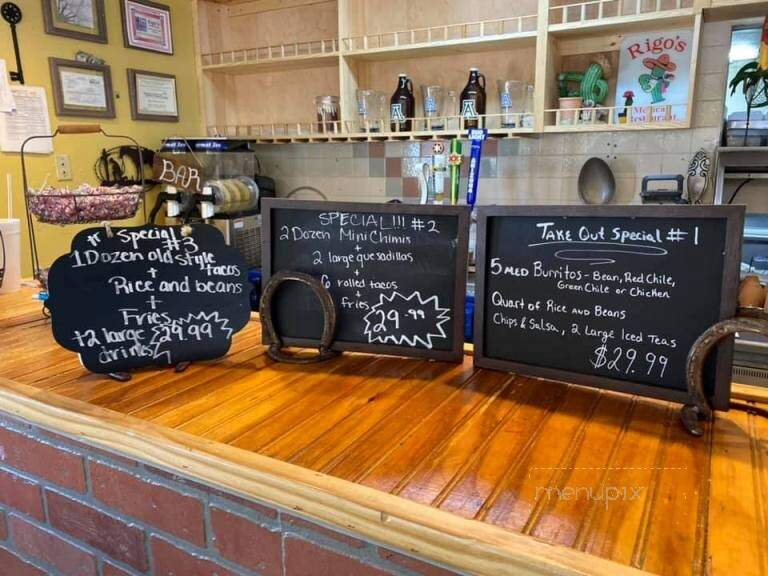 Rigo's
Mexican
Restaurant
BUD LIGHT
A
A
A
A
BAR
" Special
#3
1 Dozen old style
tacos
+
Rice and beans
+
Fries
+2 large
drinks
$29.99
SPECIAL!!! #2
2 Dozen Mini Chimis
+
2 large quesadillas
+
6 rolled tacos
+
fries
29.99
Take Out Special #1
5 med Burritos - Bean, Red Chile,
Green Chile or Chicken
Quart of Rice and Beans
Chips & Salsa, 2 Large Iced Teas
$29.99
menupix